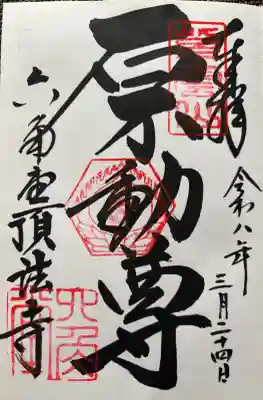 奉拝
令和八年
三月二十四日
石不動尊
六角堂頂法寺